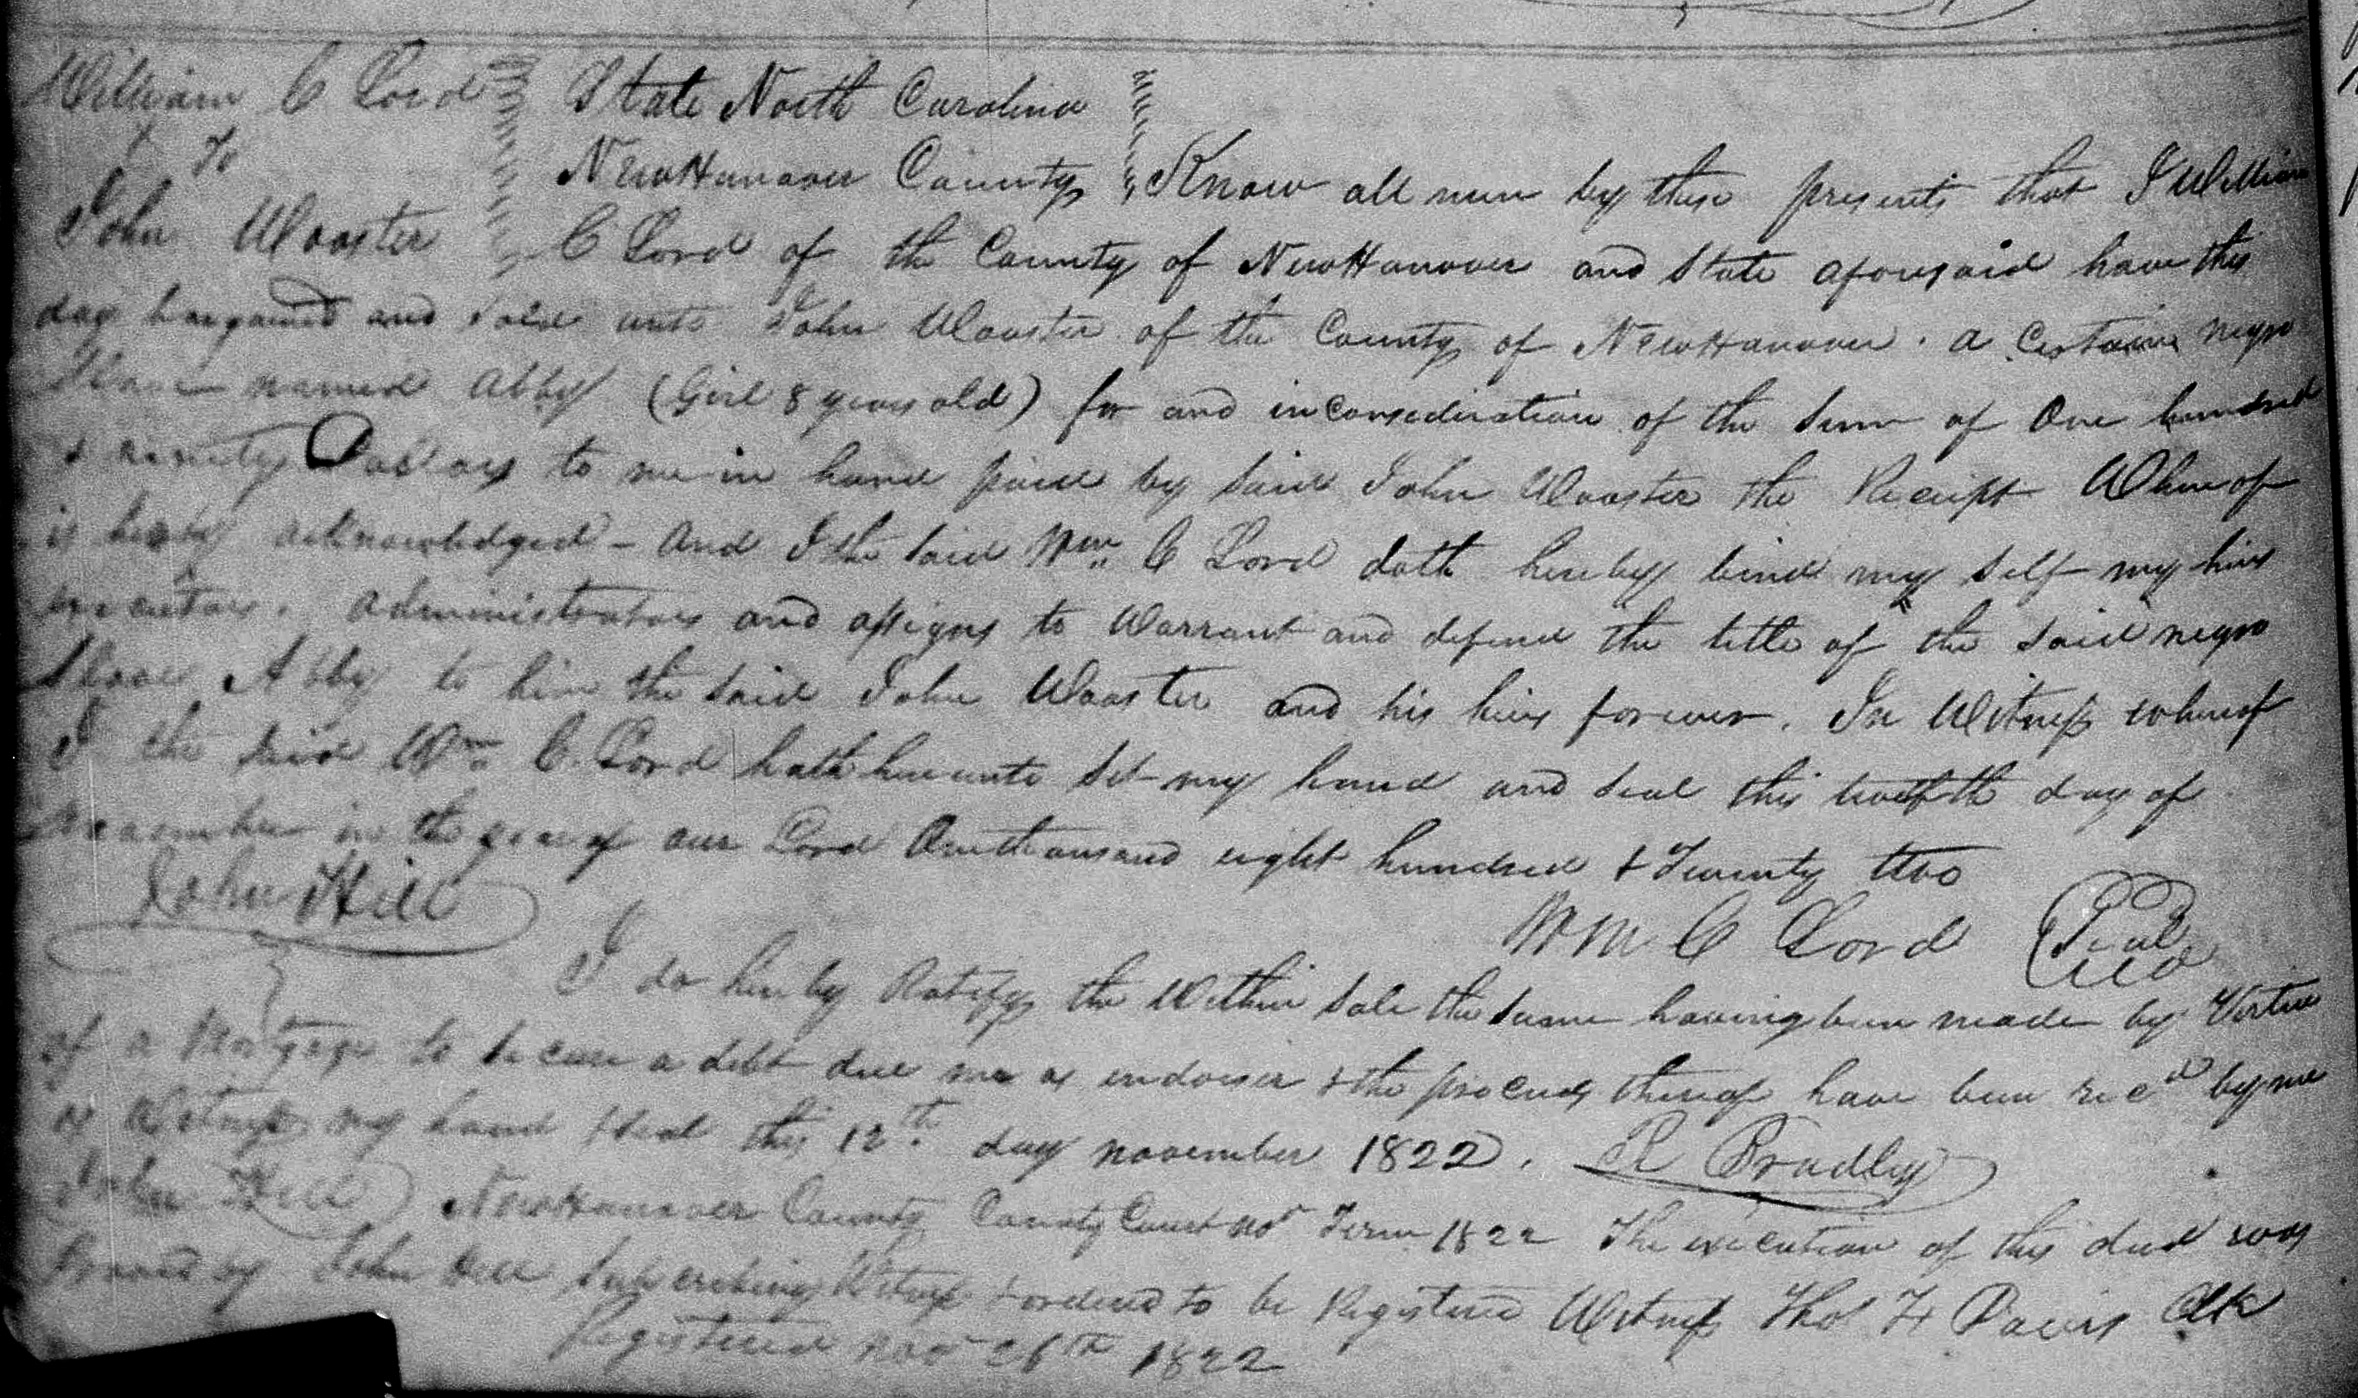 William C Lord State North Carolina
To
New Hanover County Know all men by these presents that I William
John Wooster C Lord of the County of New Hanover and State aforesaid have this
day bargained and sold unto John Wooster of the County of New Hanover. a Certain negro
Slave named Abby (Girl 8 years old) for and in Consederation of the Sum of One hundred
& ninety Dollars to me in hand paid by said John Wooster the Receipt Whereof
is hereby acknowledged - And I the Said Wm C Lord doth hereby bind my self my heirs
executors. administrators and assigns to Warrant and defend the title of the said negro
Slave Abby to him the said John Wooster and his heirs forever. In Witness whereof
I the said Wm C. Lord hath hereunto Set my hand and seal this twelfth day of
November in the year of our Lord One thousand eight hundred & Twenty two
John Hill
Wm C Lord Seal
I do hereby Ratify the Within Sale the same having been made by Virtue
of a Mortgage to secure a debt due me as endorser & the proceeds thereof have been recd by me
as Witness my hand & seal this 12th day november 1822. R Bradley
John Hill New Hanover County County Court Nov Term 1822 The execution of this deed was
proved by John Hill Subscribing Witness & ordered to be Registered Witness Thos F Davis Clk
Registered Nov 26th 1822